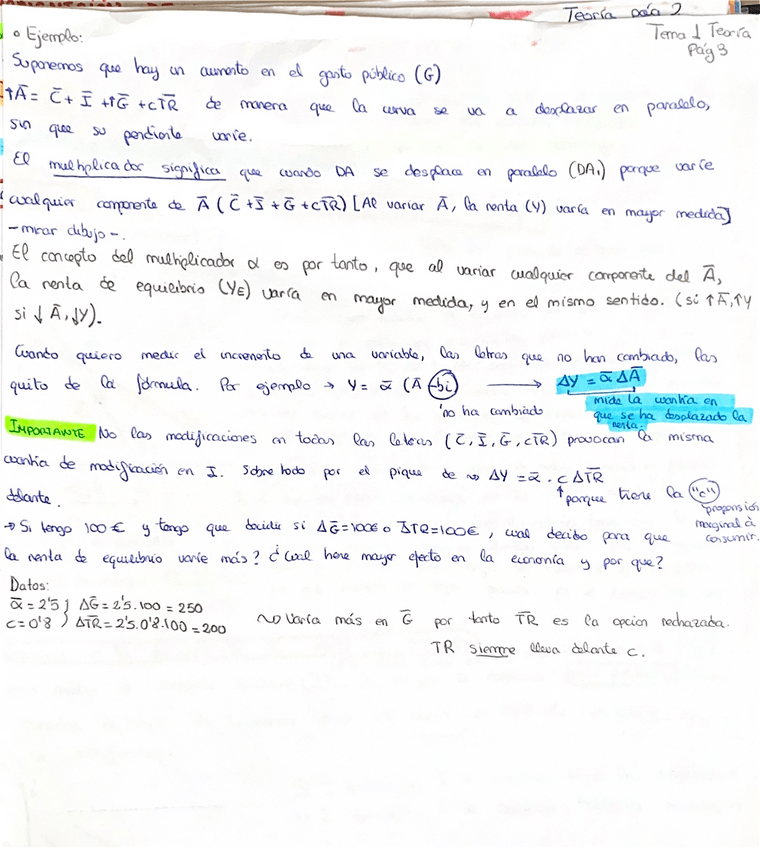 Teoría para 2
Tema 1 Teoría
Pág 3
• Ejemplo:
Suponemos que hay un aumento en el gasto público (G)
↑Ā = C̄ + Ī + ↑Ḡ + cT̄R̄ de manera que la curva se va a desplazar en paralelo,
sin que su pendiente varíe.
El multiplicador significa que cuando DA se desplace en paralelo (DA₁) porque varíe
cualquier componente de Ā (C̄ + Ī + Ḡ + cT̄R̄) [Al variar Ā, la renta (Y) varía en mayor medida]
-mirar dibujo-.
El concepto del multiplicador α es por tanto, que al variar cualquier componente del Ā,
la renta de equilibrio (YE) varía en mayor medida, y en el mismo sentido. (si ↑Ā, ↑Y
si ↓Ā, ↓Y).
Cuando quiero medir el incremento de una variable, las letras que no han cambiado, las
quito de la fórmula. Por ejemplo → Y = ᾱ (Ā - bi) → ΔY = ᾱ ΔĀ
no ha cambiado
mide la cuantía en
que se ha desplazado la
renta.
IMPORTANTE No las modificaciones en todas las letras (C̄, Ī, Ḡ, cT̄R̄) provocan la misma
cuantía de modificación en I. Sobre todo por el pique de ~> ΔY = ᾱ . c ΔT̄R̄
delante.
↑ porque tiene la "c"
proporsión
marginal a
consumir.
→ Si tengo 100€ y tengo que decidir si ΔḠ=100€ o ΔT̄R̄=100€, cual decido para que
la renta de equilibrio varíe más? ¿Cual tiene mayor efecto en la economía y por que?
Datos:
ᾱ = 2'5 } ΔḠ = 2'5.100 = 250
c = 0'8 } ΔT̄R̄ = 2'5.0'8.100 = 200
~> Varía más en Ḡ por tanto T̄R̄ es la opcion rechazada.
TR siempre lleva delante c.